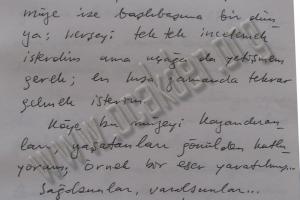 müze ise başlıbaşına bir dün
ya; herşeyi tek tek incelemek
isterdim ama uçağa da yetişmem
gerek; en kısa zamanda tekrar
gelmek isterim.
Köye bu müzeyi kazandıran-
ları yaşatanları gönülden kutlu
yorum, örnek bir eser yaratılmış...
Sağolsunlar, varolsunlar...